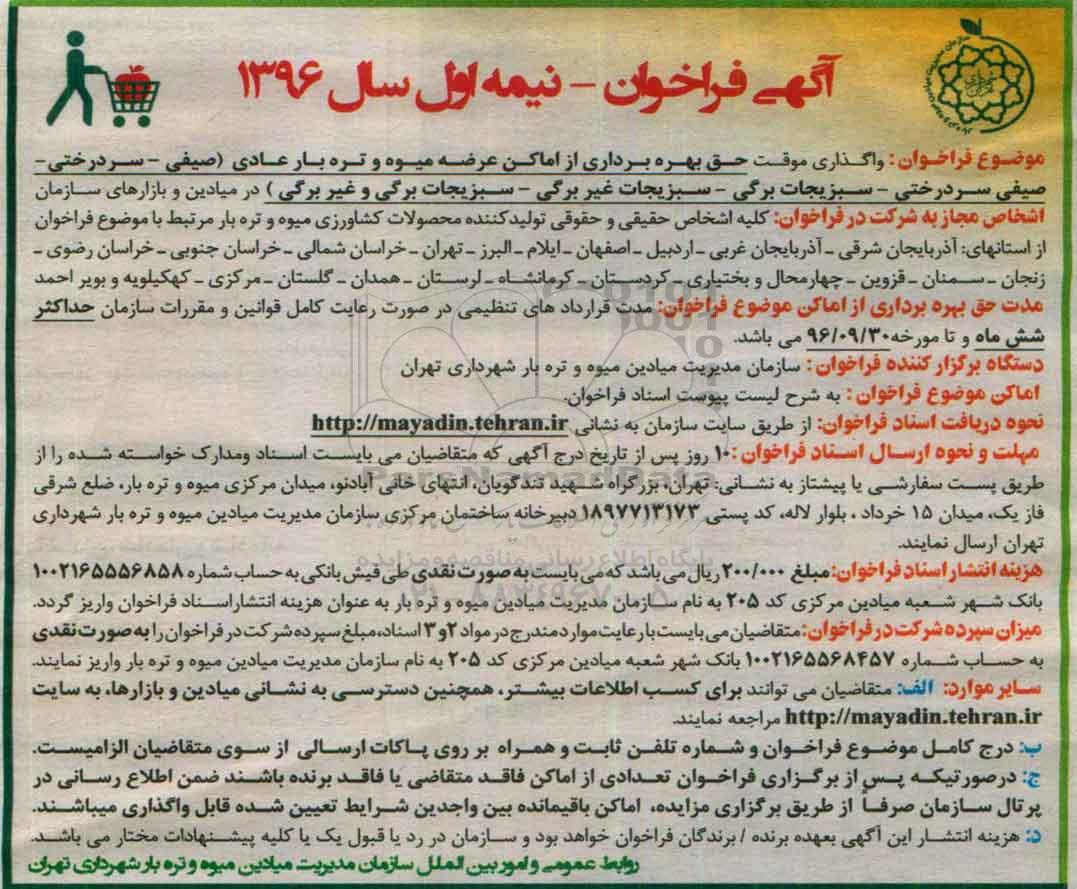 آگهی فراخوان - نیمه اول سال ۱۳۹۶
موضوع فراخوان: واگذاری موقت حق بهره برداری از اماکن عرضه میوه و تره بار عادی (صیفی - سردرختی -
صیفی سردرختی - سبزیجات برگی - سبزیجات غیر برگی - سبزیجات برگی و غیر برگی) در میادین و بازارهای سازمان
اشخاص مجاز به شرکت در فراخوان: کلیه اشخاص حقیقی و حقوقی تولیدکننده محصولات کشاورزی میوه و تره بار مرتبط با موضوع فراخوان
از استانهای: آذربایجان شرقی - آذربایجان غربی - اردبیل - اصفهان - ایلام - البرز - تهران - خراسان شمالی - خراسان جنوبی - خراسان رضوی -
زنجان - سمنان - قزوین - چهارمحال و بختیاری - کردستان - کرمانشاه - لرستان - همدان - گلستان - مرکزی - کهکیلویه و بویر احمد
مدت حق بهره برداری از اماکن موضوع فراخوان: مدت قرارداد های تنظیمی در صورت رعایت کامل قوانین و مقررات سازمان حداکثر
شش ماه و تا مورخه ۹۶/۰۹/۳۰ می باشد.
دستگاه برگزار کننده فراخوان: سازمان مدیریت میادین میوه و تره بار شهرداری تهران
اماکن موضوع فراخوان: به شرح لیست پیوست اسناد فراخوان.
نحوه دریافت اسناد فراخوان: از طریق سایت سازمان به نشانی http://mayadin.tehran.ir
مهلت و نحوه ارسال اسناد فراخوان: ۱۰ روز پس از تاریخ درج آگهی که متقاضیان می بایست اسناد ومدارک خواسته شده را از
طریق پست سفارشی یا پیشتاز به نشانی: تهران، بزرگراه شهید تندگویان، انتهای خانی آبادنو، میدان مرکزی میوه و تره بار، ضلع شرقی
فاز یک، میدان ۱۵ خرداد، بلوار لاله، کد پستی ۱۸۹۷۷۱۳۱۷۳ دبیرخانه ساختمان مرکزی سازمان مدیریت میادین میوه و تره بار شهرداری
تهران ارسال نمایند.
هزینه انتشار اسناد فراخوان: مبلغ ۲۰۰/۰۰۰ ریال می باشد که می بایست به صورت نقدی طی فیش بانکی به حساب شماره ۱۰۰۲۱۶۵۵۵۶۸۵۸
بانک شهر شعبه میادین مرکزی کد ۲۰۵ به نام سازمان مدیریت میادین میوه و تره بار به عنوان هزینه انتشار اسناد فراخوان واریز گردد.
میزان سپرده شرکت در فراخوان: متقاضیان می بایست با رعایت موارد مندرج در مواد ۲و۳ اسناد، مبلغ سپرده شرکت در فراخوان را به صورت نقدی
به حساب شماره ۱۰۰۲۱۶۵۵۶۸۴۵۷ بانک شهر شعبه میادین مرکزی کد ۲۰۵ به نام سازمان مدیریت میادین میوه و تره بار واریز نمایند.
سایر موارد: الف: متقاضیان می توانند برای کسب اطلاعات بیشتر، همچنین دسترسی به نشانی میادین و بازارها، به سایت
http://mayadin.tehran.ir مراجعه نمایند.
ب: درج کامل موضوع فراخوان و شماره تلفن ثابت و همراه بر روی پاکات ارسالی از سوی متقاضیان الزامیست.
ج: درصورتیکه پس از برگزاری فراخوان تعدادی از اماکن فاقد متقاضی یا فاقد برنده باشند ضمن اطلاع رسانی در
پرتال سازمان صرفاً از طریق برگزاری مزایده، اماکن باقیمانده بین واجدین شرایط تعیین شده قابل واگذاری میباشند.
د: هزینه انتشار این آگهی بعهده برنده / برندگان فراخوان خواهد بود و سازمان در رد یا قبول یک یا کلیه پیشنهادات مختار می باشد.
روابط عمومی و امور بین الملل سازمان مدیریت میادین میوه و تره بار شهرداری تهران
ParsNamadData
پایگاه اطلاع رسانی مناقصه و مزایده